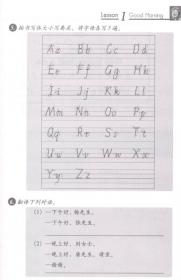 Lesson 1 Good Morning
5. 按书写体大小写格式，将字母各写5遍。
Aa Bb Cc Dd
Ee Ff Gg Hh
Ii Jj Kk Ll
Mm Nn Oo Pp
Qq Rr Ss Tt
Uu Vv Ww Xx
Yy Zz
6. 翻译下列对话。
(1) —下午好，
—下午好，张先生。
(2) —晚上好，刘女士。
—晚上好，唐先生。请坐。
—谢谢。